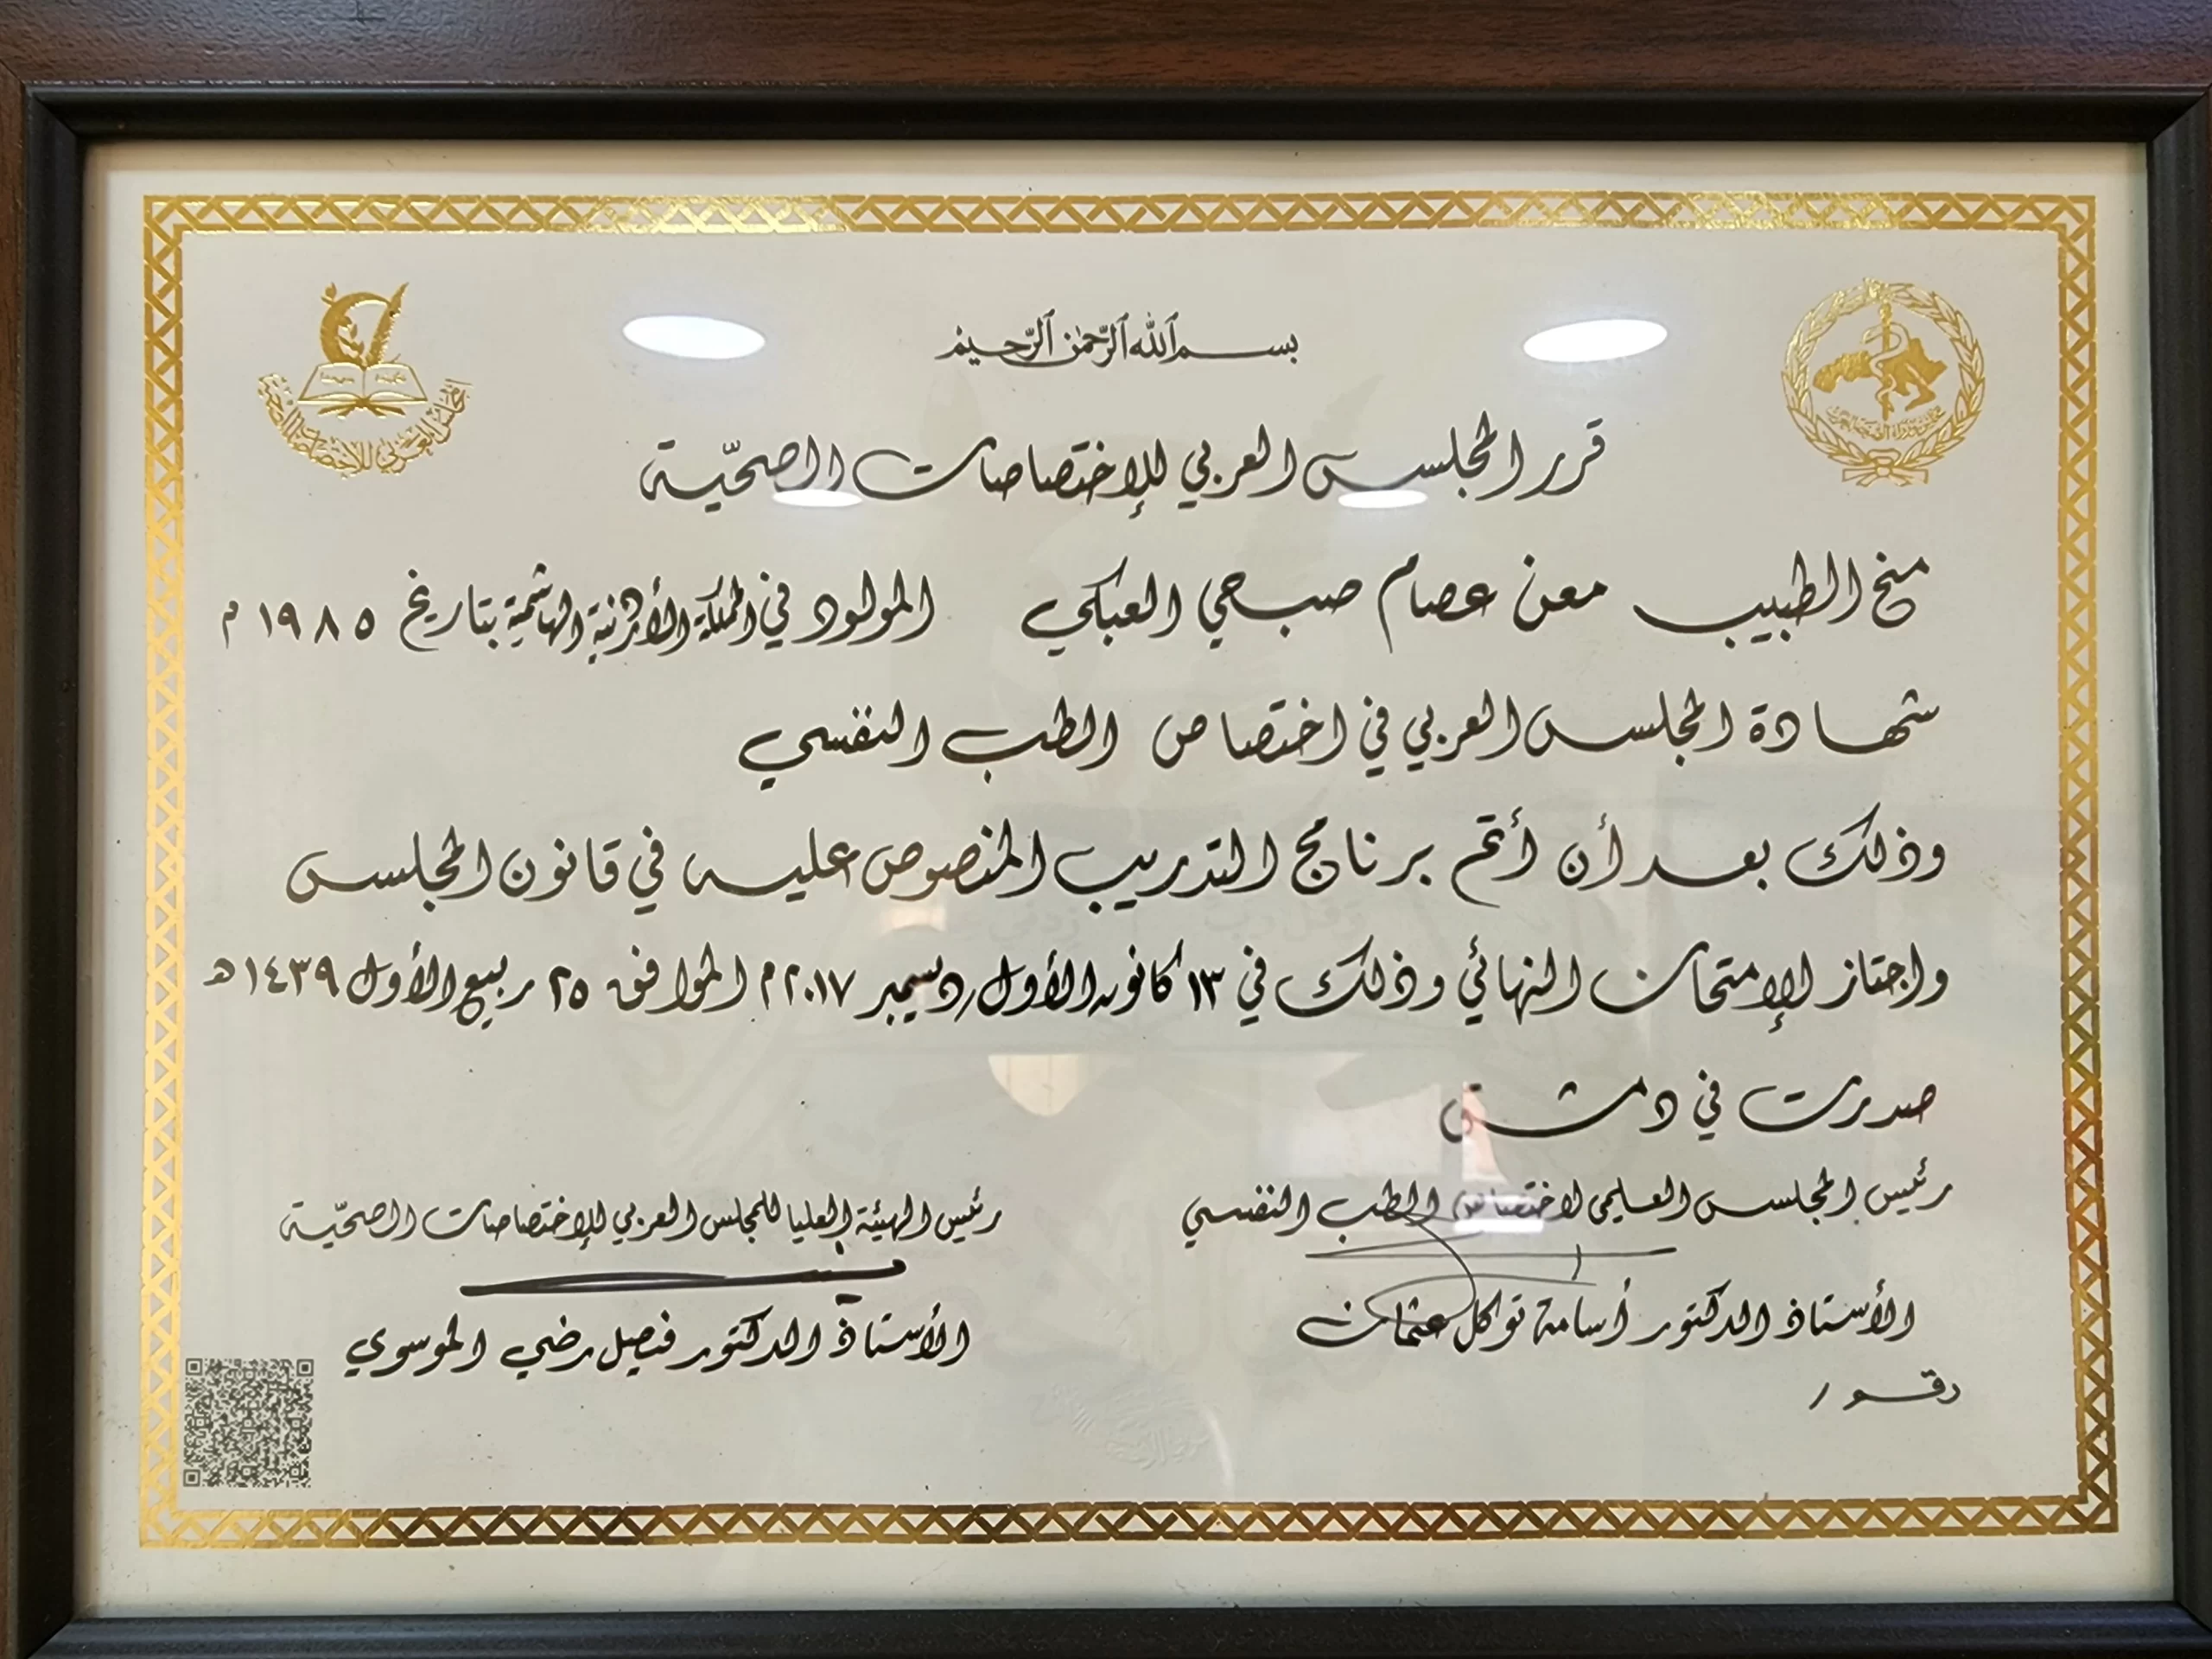 بسم الله الرحمن الرحيم
قرر المجلس العربي للإختصاصات الصحيّة
منح الطبيب معن عصام صبحي العبكي المولود في المملكة الأردنية الهاشمية بتاريخ ١٩٨٥ م
شهادة المجلس العربي في اختصاص الطب النفسي
وذلك بعد أن أتم برنامج التدريب المنصوص عليه في قانون المجلس
واجتاز الإمتحان النهائي وذلك في ١٣ كانون الأول/ديسمبر ٢٠١٧ م الموافق ٢٥ ربيع الأول ١٤٣٩ هـ
صدرت في دمشق
رئيس المجلس العلمي لاختصاص الطب النفسي
الأستاذ الدكتور أسامة توكل عثمان
رئيس الهيئة العليا للمجلس العربي للإختصاصات الصحيّة
الأستاذ الدكتور فيصل رضي الموسوي